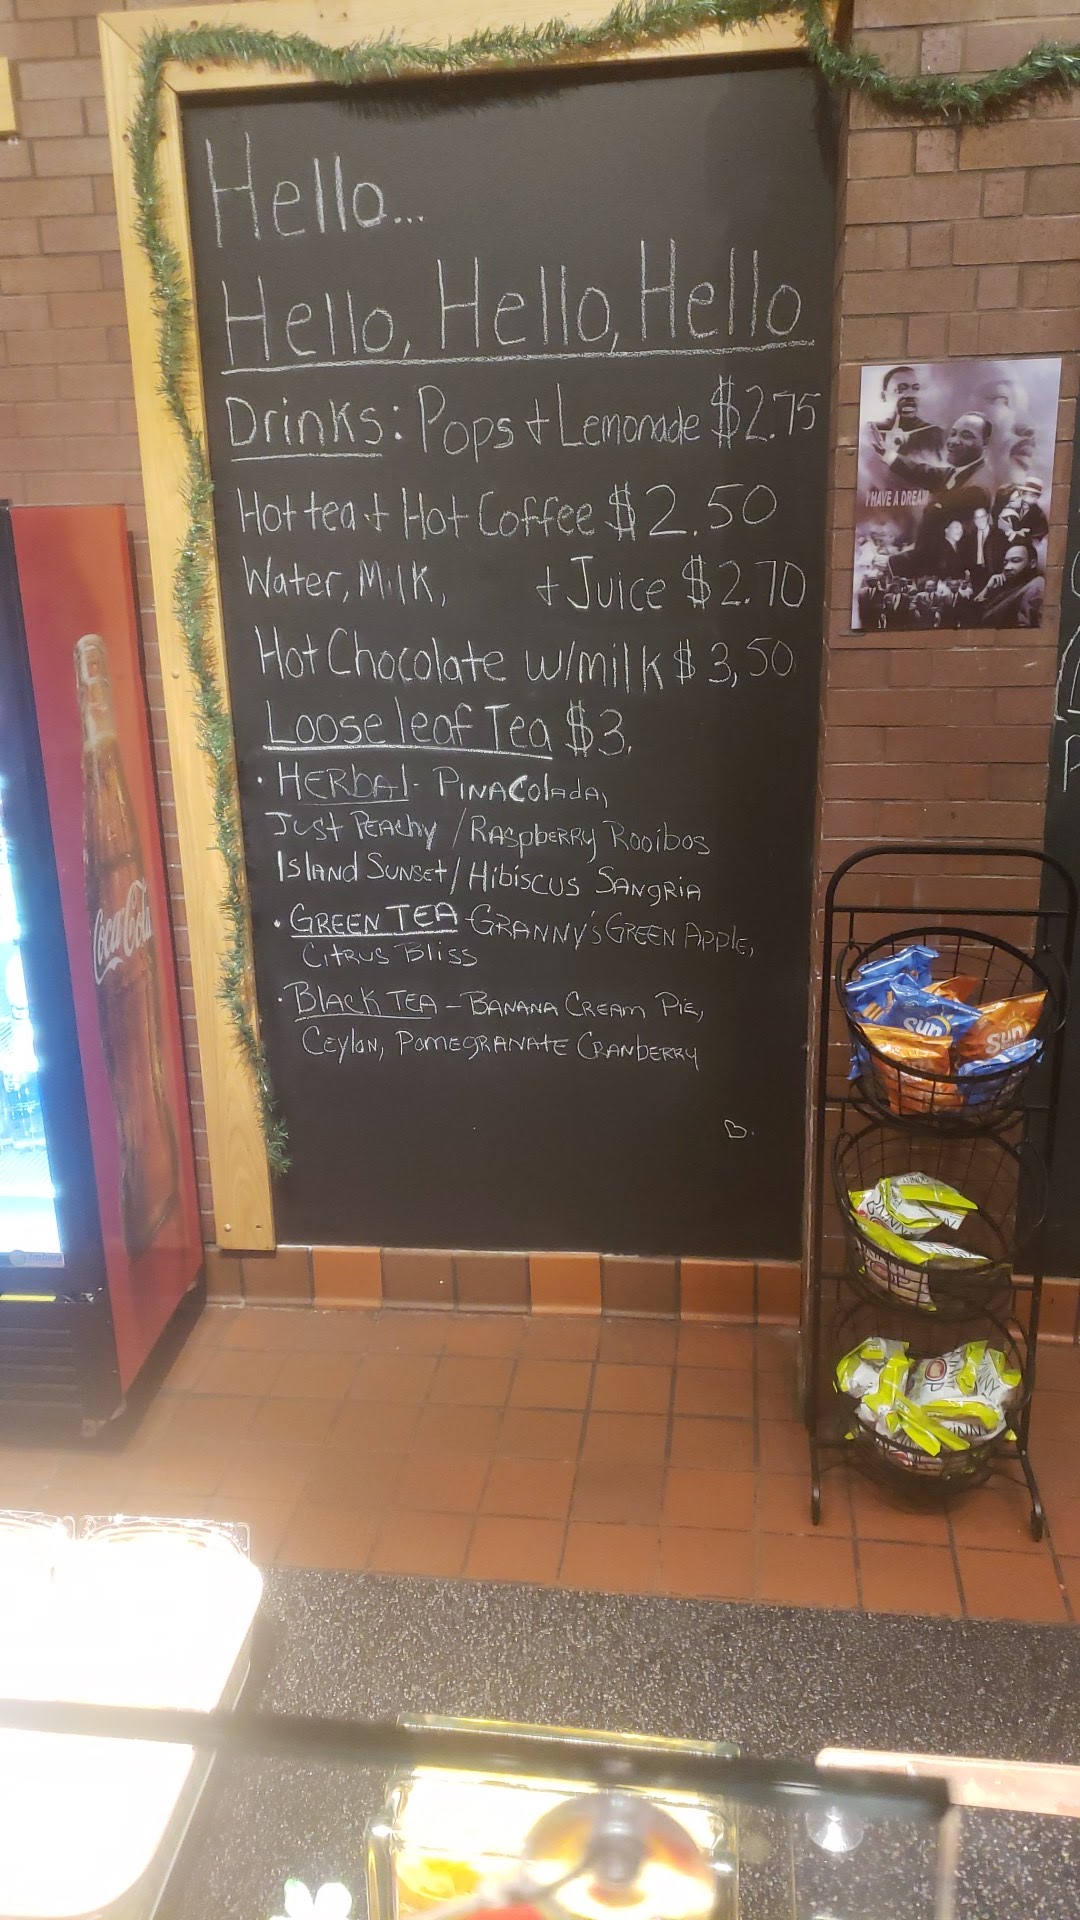 Hello...
Hello, Hello, Hello
Drinks: Pops + Lemonade $2.75
Hot tea + Hot Coffee $2.50
Water, Milk, + Juice $2.70
Hot Chocolate w/milk $3,50
Loose leaf Tea $3.
• HERBAL - PINACOlada,
Just Peachy / Raspberry Rooibos
Island Sunset / Hibiscus Sangria
• GREEN TEA - GRANNY'S GREEN APPLE,
Citrus Bliss
• Black TEA - BANANA CREAM PIE,
Ceylon, POMEGRANATE CRANBERRY
I HAVE A DREAM
Coca-Cola
Sun
Sun